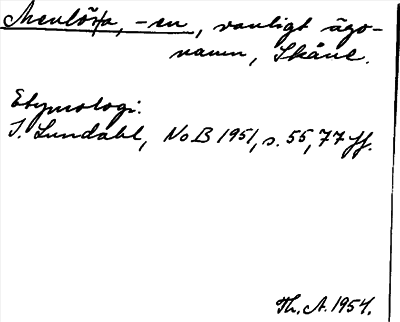 Menlösa, -en, vanligt ägo-
namn, Skåne.
Etymologi:
I. Lundahl, NoB 1951, s. 55, 77 ff.
Th. A. 1954.